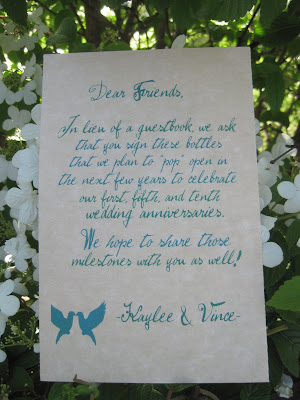 Dear Friends,
In lieu of a guestbook, we ask
that you sign these bottles
that we plan to "pop" open in
the next few years to celebrate
our first, fifth, and tenth
wedding anniversaries.
We hope to share those
milestones with you as well!
-Kaylee & Vince-